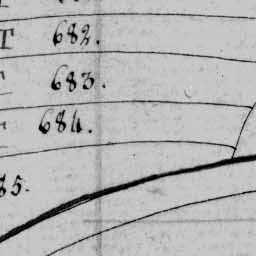 T 682.
683.
684.
85.